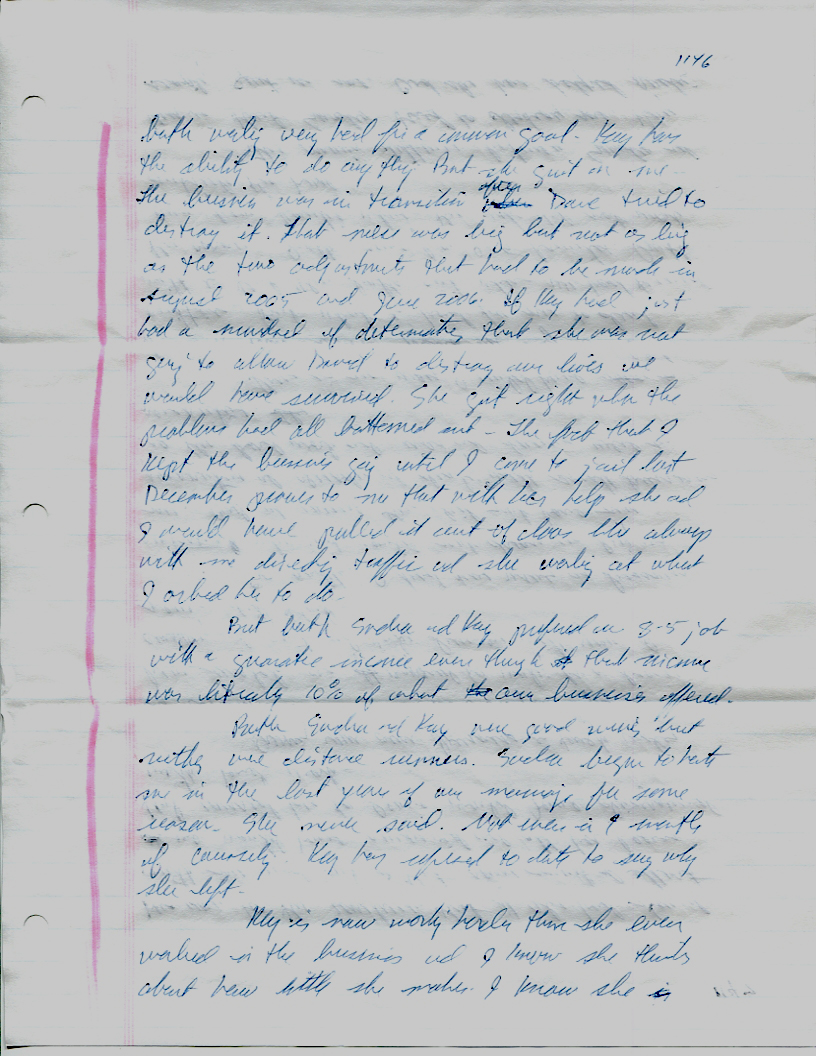 1146
both working very hard for a common goal. Kay has
the ability to do anything But she quit on me.
The business was in transition after Dave tried to
destroy it. That was big but not as big
as the two adjustments that had to be made in
August 2005 and June 2006. If Kay had just
had a mindset of determination that she was not
going to allow David to destroy our lives we
would have survived. She quit right when the
problems had all bottomed out - The fact that I
kept the business going until I came to jail last
December proves to me that with her help she and
I would have pulled it out of always
with me directing traffic and she working at what
I asked her to do.
But both and Kay preferred an 8-5 job
with a guarantee income even though that income
was literally 10% of what our business offered.
Both and Kay were good but
neither were distance runners. began to hate
me in the last years of our marriage for some
reason. She never said. Not even in 9 months
of counseling. Kay has refused to date to say why
she left.
Kay is now working harder than she ever
worked in the business and I know she thinks
about how little she makes. I know she is